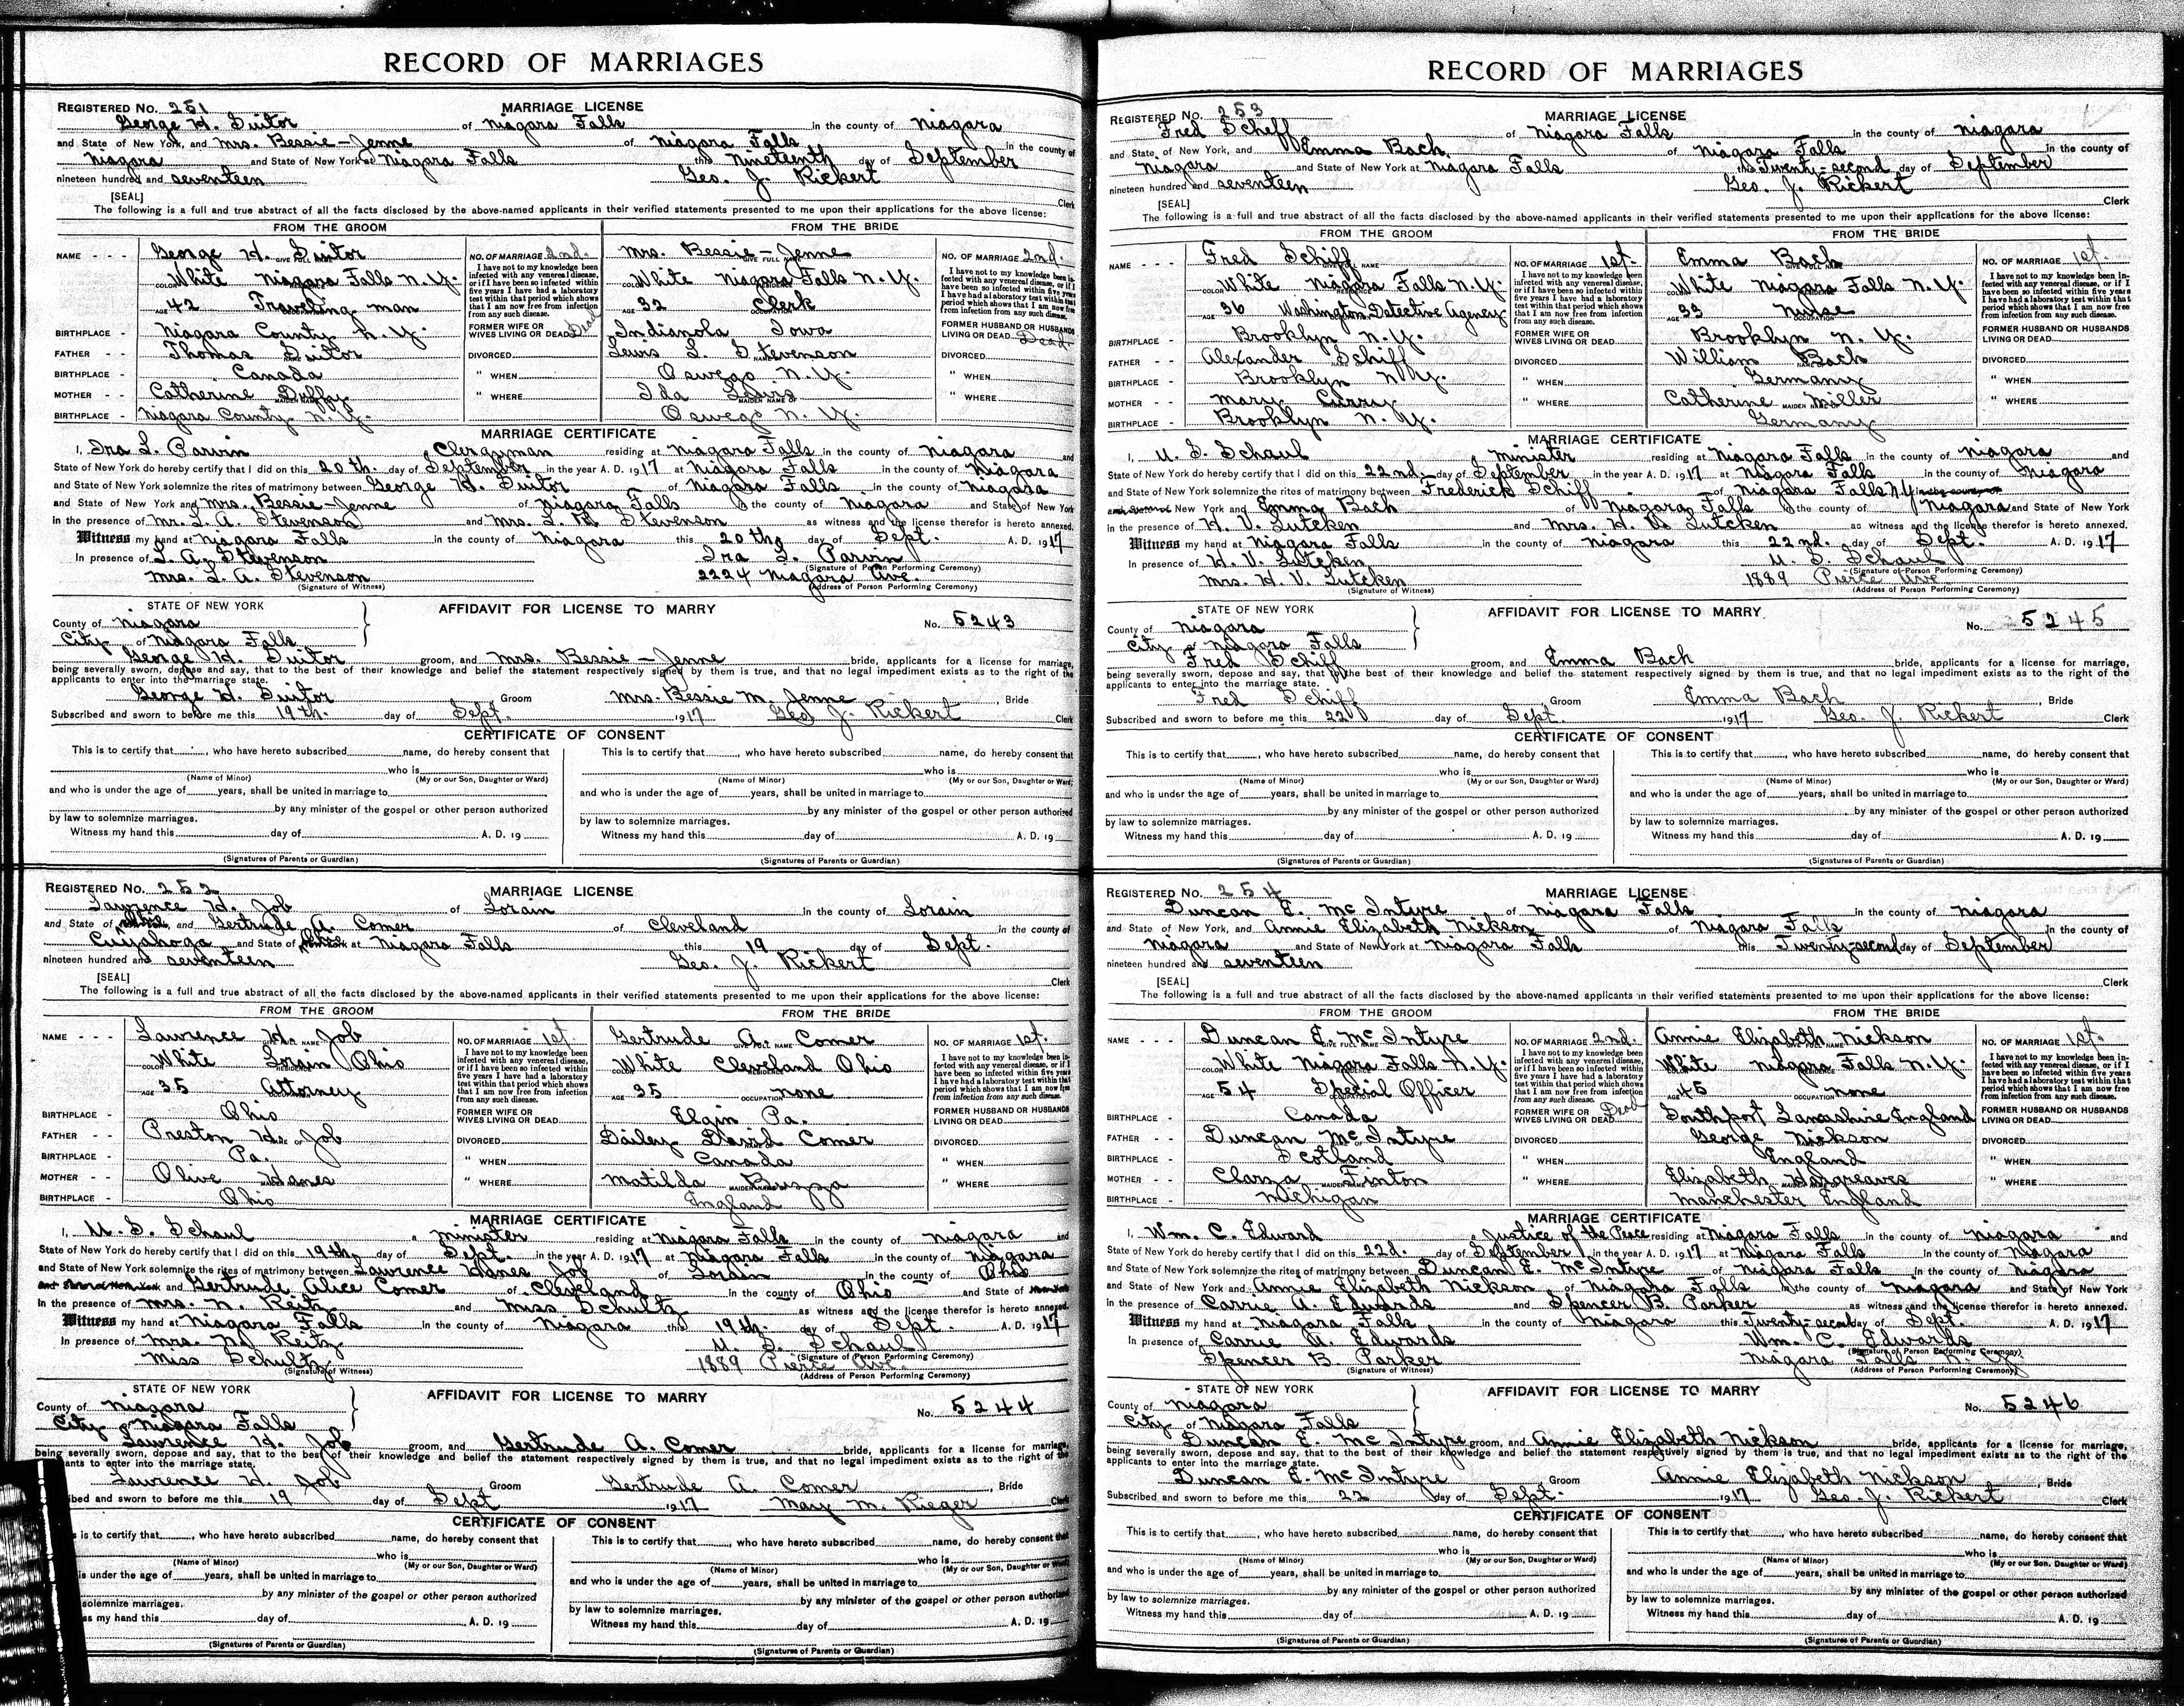 RECORD OF MARRIAGES
REGISTERED No. 251 MARRIAGE LICENSE
George H. Suitor of Niagara Falls in the county of Niagara
and State of New York, and Mrs. Bessie - Jenne of Niagara Falls in the county of
Niagara and State of New York at Niagara Falls this Nineteenth day of September
nineteen hundred and seventeen Geo. J. Rickert
[SEAL] Clerk
The following is a full and true abstract of all the facts disclosed by the above-named applicants in their verified statements presented to me upon their applications for the above license:
FROM THE GROOM FROM THE BRIDE
NAME George H. Suitor NO. OF MARRIAGE 2nd. Mrs. Bessie - Jenne NO. OF MARRIAGE 2nd.
GIVE FULL NAME GIVE FULL NAME
I have not to my knowledge been infected with any venereal disease, or if I have been so infected within five years I have had a laboratory test within that period which shows that I am now free from infection from any such disease.
COLOR White Niagara Falls N.Y. COLOR White Niagara Falls N.Y.
AGE 42 Traveling man OCCUPATION AGE 32 Clerk OCCUPATION
BIRTHPLACE Niagara County N.Y. FORMER WIFE OR WIVES LIVING OR DEAD Dead Indianola Iowa FORMER HUSBAND OR HUSBANDS LIVING OR DEAD Dead.
FATHER Thomas Suitor DIVORCED Lewis L. Stevenson DIVORCED
BIRTHPLACE Canada " WHEN Oswego N.Y. " WHEN
MOTHER Catherine Duffy MAIDEN NAME " WHERE Ida Lewis MAIDEN NAME " WHERE
BIRTHPLACE Niagara County N.Y. Oswego N.Y.
MARRIAGE CERTIFICATE
I, Ira S. Parvin Clergyman residing at Niagara Falls in the county of Niagara and
State of New York do hereby certify that I did on this 20th. day of September in the year A. D. 1917 at Niagara Falls in the county of Niagara
and State of New York solemnize the rites of matrimony between George H. Suitor of Niagara Falls in the county of Niagara
and State of New York and Mrs. Bessie - Jenne of Niagara Falls in the county of Niagara and State of New York
in the presence of Mr. L. A. Stevenson and Mrs. L. A. Stevenson as witness and the license therefor is hereto annexed.
Witness my hand at Niagara Falls in the county of Niagara this 20th day of Sept. A. D. 1917
In presence of L. A. Stevenson Ira S. Parvin
(Signature of Person Performing Ceremony)
Mrs. L. A. Stevenson 2224 Niagara Ave.
(Signature of Witness) (Address of Person Performing Ceremony)
STATE OF NEW YORK AFFIDAVIT FOR LICENSE TO MARRY
County of Niagara No. 5243
City of Niagara Falls
George H. Suitor groom, and Mrs. Bessie - Jenne bride, applicants for a license for marriage,
being severally sworn, depose and say, that to the best of their knowledge and belief the statement respectively signed by them is true, and that no legal impediment exists as to the right of the
applicants to enter into the marriage state.
George H. Suitor Groom Mrs. Bessie M. Jenne, Bride
Subscribed and sworn to before me this 19th. day of Sept. 1917 Geo. J. Rickert Clerk
CERTIFICATE OF CONSENT
This is to certify that, who have hereto subscribed name, do hereby consent that This is to certify that, who have hereto subscribed name, do hereby consent that
who is who is
(Name of Minor) (My or our Son, Daughter or Ward) (Name of Minor) (My or our Son, Daughter or Ward)
and who is under the age of years, shall be united in marriage to and who is under the age of years, shall be united in marriage to
by any minister of the gospel or other person authorized by any minister of the gospel or other person authorized
by law to solemnize marriages. by law to solemnize marriages.
Witness my hand this day of A. D. 19 Witness my hand this day of A. D. 19
(Signatures of Parents or Guardian) (Signatures of Parents or Guardian)
REGISTERED No. 252 MARRIAGE LICENSE
Lawrence H. Job of Lorain in the county of Lorain
and State of Ohio, and Gertrude A. Comer of Cleveland in the county of
Cuyahoga and State of Ohio at Niagara Falls this 19 day of Sept.
nineteen hundred and seventeen Geo. J. Rickert
[SEAL] Clerk
The following is a full and true abstract of all the facts disclosed by the above-named applicants in their verified statements presented to me upon their applications for the above license:
FROM THE GROOM FROM THE BRIDE
NAME Lawrence H. Job NO. OF MARRIAGE 1st. Gertrude A. Comer NO. OF MARRIAGE 1st.
I have not to my knowledge been infected with any venereal disease, or if I have been so infected within five years I have had a laboratory test within that period which shows that I am now free from infection from any such disease.
COLOR White Lorain Ohio COLOR White Cleveland Ohio
AGE 35 Attorney AGE 35 OCCUPATION none
BIRTHPLACE Ohio FORMER WIFE OR WIVES LIVING OR DEAD Elgin Pa. FORMER HUSBAND OR HUSBANDS LIVING OR DEAD
FATHER Preston H. Job DIVORCED Dailey David Comer DIVORCED
BIRTHPLACE Pa. " WHEN Canada " WHEN
MOTHER Olive Hanes " WHERE Matilda Buzza " WHERE
BIRTHPLACE Ohio England
MARRIAGE CERTIFICATE
I, U. S. Schaul a minister residing at Niagara Falls in the county of Niagara and
State of New York do hereby certify that I did on this 19th. day of Sept. in the year A. D. 1917 at Niagara Falls in the county of Niagara
and State of New York solemnize the rites of matrimony between Lawrence Hanes Job of Lorain in the county of Ohio
and State of New York and Gertrude Alice Comer of Cleveland in the county of Ohio and State of New York
in the presence of Mrs. N. Reitz and Miss Schultz as witness and the license therefor is hereto annexed.
Witness my hand at Niagara Falls in the county of Niagara this 19th. day of Sept. A. D. 1917
In presence of Mrs. N. Reitz U. S. Schaul
(Signature of Person Performing Ceremony)
Miss Schultz 1889 Pierce Ave.
(Signature of Witness) (Address of Person Performing Ceremony)
STATE OF NEW YORK AFFIDAVIT FOR LICENSE TO MARRY
County of Niagara No. 5244
City of Niagara Falls
Lawrence H. Job groom, and Gertrude A. Comer bride, applicants for a license for marriage,
being severally sworn, depose and say, that to the best of their knowledge and belief the statement respectively signed by them is true, and that no legal impediment exists as to the right of the
ants to enter into the marriage state.
Lawrence H. Job Groom Gertrude A. Comer, Bride
bed and sworn to before me this 19 day of Sept 1917 May M. Rieger Clerk
CERTIFICATE OF CONSENT
is to certify that, who have hereto subscribed name, do hereby consent that This is to certify that, who have hereto subscribed name, do hereby consent that
who is who is
(Name of Minor) (My or our Son, Daughter or Ward) (Name of Minor) (My or our Son, Daughter or Ward)
is under the age of years, shall be united in marriage to and who is under the age of years, shall be united in marriage to
by any minister of the gospel or other person authorized by any minister of the gospel or other person authorized
solemnize marriages. by law to solemnize marriages.
ss my hand this day of A. D. 19 Witness my hand this day of A. D. 19
(Signatures of Parents or Guardian) (Signatures of Parents or Guardian)
RECORD OF MARRIAGES
REGISTERED No. 253 MARRIAGE LICENSE
Fred Scheff of Niagara Falls in the county of Niagara
and State of New York, and Emma Bach of Niagara Falls in the county of
Niagara and State of New York at Niagara Falls this Twenty-second day of September
nineteen hundred and seventeen Geo. J. Rickert
[SEAL] Clerk
The following is a full and true abstract of all the facts disclosed by the above-named applicants in their verified statements presented to me upon their applications for the above license:
FROM THE GROOM FROM THE BRIDE
NAME Fred Schiff NO. OF MARRIAGE 1st. Emma Bach NO. OF MARRIAGE 1st.
I have not to my knowledge been infected with any venereal disease, or if I have been so infected within five years I have had a laboratory test within that period which shows that I am now free from infection from any such disease.
COLOR White Niagara Falls N.Y. White Niagara Falls N.Y.
AGE 36 Washington Detective Agency AGE 33 Nurse OCCUPATION
BIRTHPLACE Brooklyn N.Y. FORMER WIFE OR WIVES LIVING OR DEAD Brooklyn N.Y. FORMER HUSBAND OR HUSBANDS LIVING OR DEAD
FATHER Alexander Schiff DIVORCED William Bach DIVORCED
BIRTHPLACE Brooklyn N.Y. " WHEN Germany " WHEN
MOTHER Mary Curry " WHERE Catherine MAIDEN NAME Miller " WHERE
BIRTHPLACE Brooklyn N.Y. Germany
MARRIAGE CERTIFICATE
I, U. S. Schaul a Minister residing at Niagara Falls in the county of Niagara and
State of New York do hereby certify that I did on this 22nd. day of September in the year A. D. 1917 at Niagara Falls in the county of Niagara
and State of New York solemnize the rites of matrimony between Frederick Schiff of Niagara Falls N.Y. in the county of
and State of New York and Emma Bach of Niagara Falls in the county of Niagara and State of New York
in the presence of H. V. Lutcken and Mrs. H. V. Lutcken as witness and the license therefor is hereto annexed.
Witness my hand at Niagara Falls in the county of Niagara this 22nd. day of Sept. A. D. 1917
In presence of H. V. Lutcken U. S. Schaul
(Signature of Person Performing Ceremony)
Mrs. H. V. Lutcken 1889 Pierce Ave.
(Signature of Witness) (Address of Person Performing Ceremony)
STATE OF NEW YORK AFFIDAVIT FOR LICENSE TO MARRY
County of Niagara No. 5245
City of Niagara Falls
Fred Schiff groom, and Emma Bach bride, applicants for a license for marriage,
being severally sworn, depose and say, that to the best of their knowledge and belief the statement respectively signed by them is true, and that no legal impediment exists as to the right of the
applicants to enter into the marriage state.
Fred Schiff Groom Emma Bach, Bride
Subscribed and sworn to before me this 22 day of Sept. 1917 Geo. J. Rickert Clerk
CERTIFICATE OF CONSENT
This is to certify that, who have hereto subscribed name, do hereby consent that This is to certify that, who have hereto subscribed name, do hereby consent that
who is who is
(Name of Minor) (My or our Son, Daughter or Ward) (Name of Minor) (My or our Son, Daughter or Ward)
and who is under the age of years, shall be united in marriage to and who is under the age of years, shall be united in marriage to
by any minister of the gospel or other person authorized by any minister of the gospel or other person authorized
by law to solemnize marriages. by law to solemnize marriages.
Witness my hand this day of A. D. 19 Witness my hand this day of A. D. 19
(Signatures of Parents or Guardian) (Signatures of Parents or Guardian)
REGISTERED No. 254 MARRIAGE LICENSE
Duncan E. McIntyre of Niagara Falls in the county of Niagara
and State of New York, and Annie Elizabeth Nickson of Niagara Falls in the county of
Niagara and State of New York at Niagara Falls this Twenty-second day of September
nineteen hundred and seventeen
[SEAL] Clerk
The following is a full and true abstract of all the facts disclosed by the above-named applicants in their verified statements presented to me upon their applications for the above license:
FROM THE GROOM FROM THE BRIDE
NAME Duncan E. McIntyre NO. OF MARRIAGE 2nd. Annie Elizabeth Nickson NO. OF MARRIAGE 1st.
I have not to my knowledge been infected with any venereal disease, or if I have been so infected within five years I have had a laboratory test within that period which shows that I am now free from infection from any such disease.
COLOR White Niagara Falls N.Y. White Niagara Falls N.Y.
AGE 54 Special Officer AGE 45 OCCUPATION none
BIRTHPLACE Canada FORMER WIFE OR WIVES LIVING OR DEAD Dead Southport Lancashire England FORMER HUSBAND OR HUSBANDS LIVING OR DEAD
FATHER Duncan McIntyre DIVORCED George Nickson DIVORCED
BIRTHPLACE Scotland " WHEN England " WHEN
MOTHER Clarza Finton " WHERE Elizabeth Hargreaves " WHERE
BIRTHPLACE Michigan Manchester England
MARRIAGE CERTIFICATE
I, Wm. C. Edward a Justice of the Peace residing at Niagara Falls in the county of Niagara and
State of New York do hereby certify that I did on this 22d. day of September in the year A. D. 1917 at Niagara Falls in the county of Niagara
and State of New York solemnize the rites of matrimony between Duncan E. McIntyre of Niagara Falls in the county of Niagara
and State of New York and Annie Elizabeth Nickson of Niagara Falls in the county of Niagara and State of New York
in the presence of Carrie A. Edwards and Spencer B. Parker as witness and the license therefor is hereto annexed.
Witness my hand at Niagara Falls in the county of Niagara this Twenty-second day of Sept. A. D. 1917
In presence of Carrie A. Edwards Wm. C. Edwards
(Signature of Person Performing Ceremony)
Spencer B. Parker Niagara Falls N.Y.
(Signature of Witness) (Address of Person Performing Ceremony)
STATE OF NEW YORK AFFIDAVIT FOR LICENSE TO MARRY
County of Niagara No. 5246
City of Niagara Falls
Duncan E. McIntyre groom, and Annie Elizabeth Nickson bride, applicants for a license for marriage,
being severally sworn, depose and say, that to the best of their knowledge and belief the statement respectively signed by them is true, and that no legal impediment exists as to the right of the
applicants to enter into the marriage state.
Duncan E. McIntyre Groom Annie Elizabeth Nickson, Bride
Subscribed and sworn to before me this 22 day of Sept. 1917 Geo. J. Rickert Clerk
CERTIFICATE OF CONSENT
This is to certify that, who have hereto subscribed name, do hereby consent that This is to certify that, who have hereto subscribed name, do hereby consent that
who is who is
(Name of Minor) (My or our Son, Daughter or Ward) (Name of Minor) (My or our Son, Daughter or Ward)
and who is under the age of years, shall be united in marriage to and who is under the age of years, shall be united in marriage to
by any minister of the gospel or other person authorized by any minister of the gospel or other person authorized
by law to solemnize marriages. by law to solemnize marriages.
Witness my hand this day of A. D. 19 Witness my hand this day of A. D. 19
(Signatures of Parents or Guardian) (Signatures of Parents or Guardian)